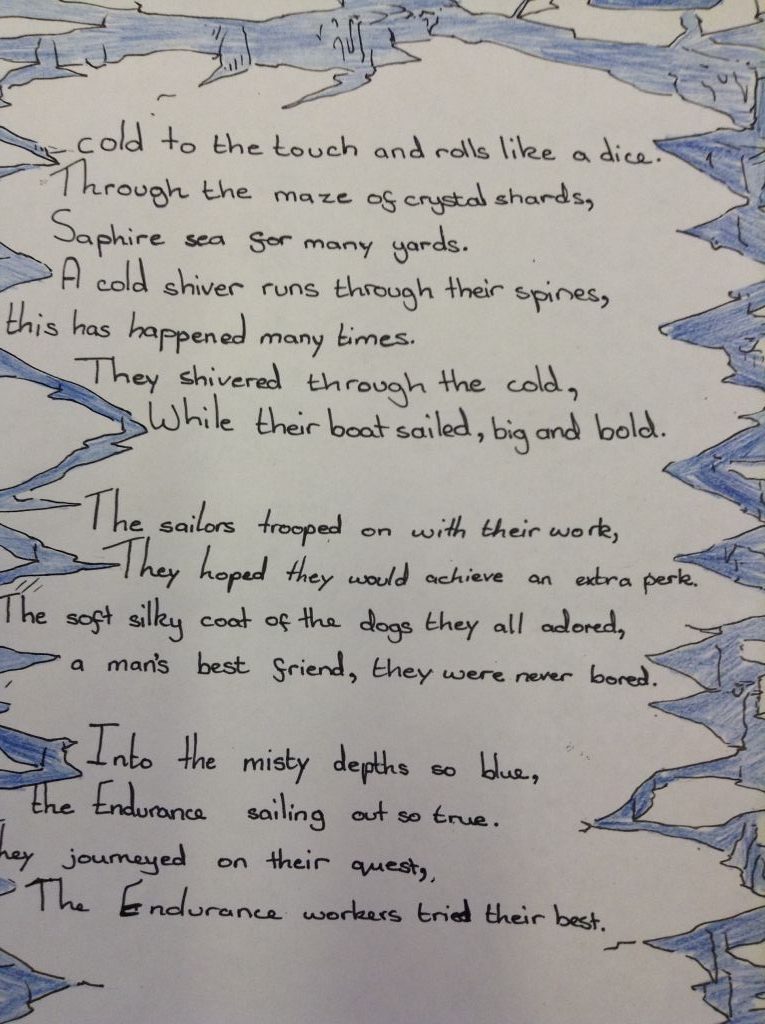 cold to the touch and rolls like a dice.
Through the maze of crystal shards,
Saphire sea for many yards.
A cold shiver runs through their spines,
this has happened many times.
They shivered through the cold,
While their boat sailed, big and bold.
The sailors trooped on with their work,
They hoped they would achieve an extra perk.
The soft silky coat of the dogs they all adored,
a man's best friend, they were never bored.
Into the misty depths so blue,
the Endurance sailing out so true.
hey journeyed on their quest,
The Endurance workers tried their best.